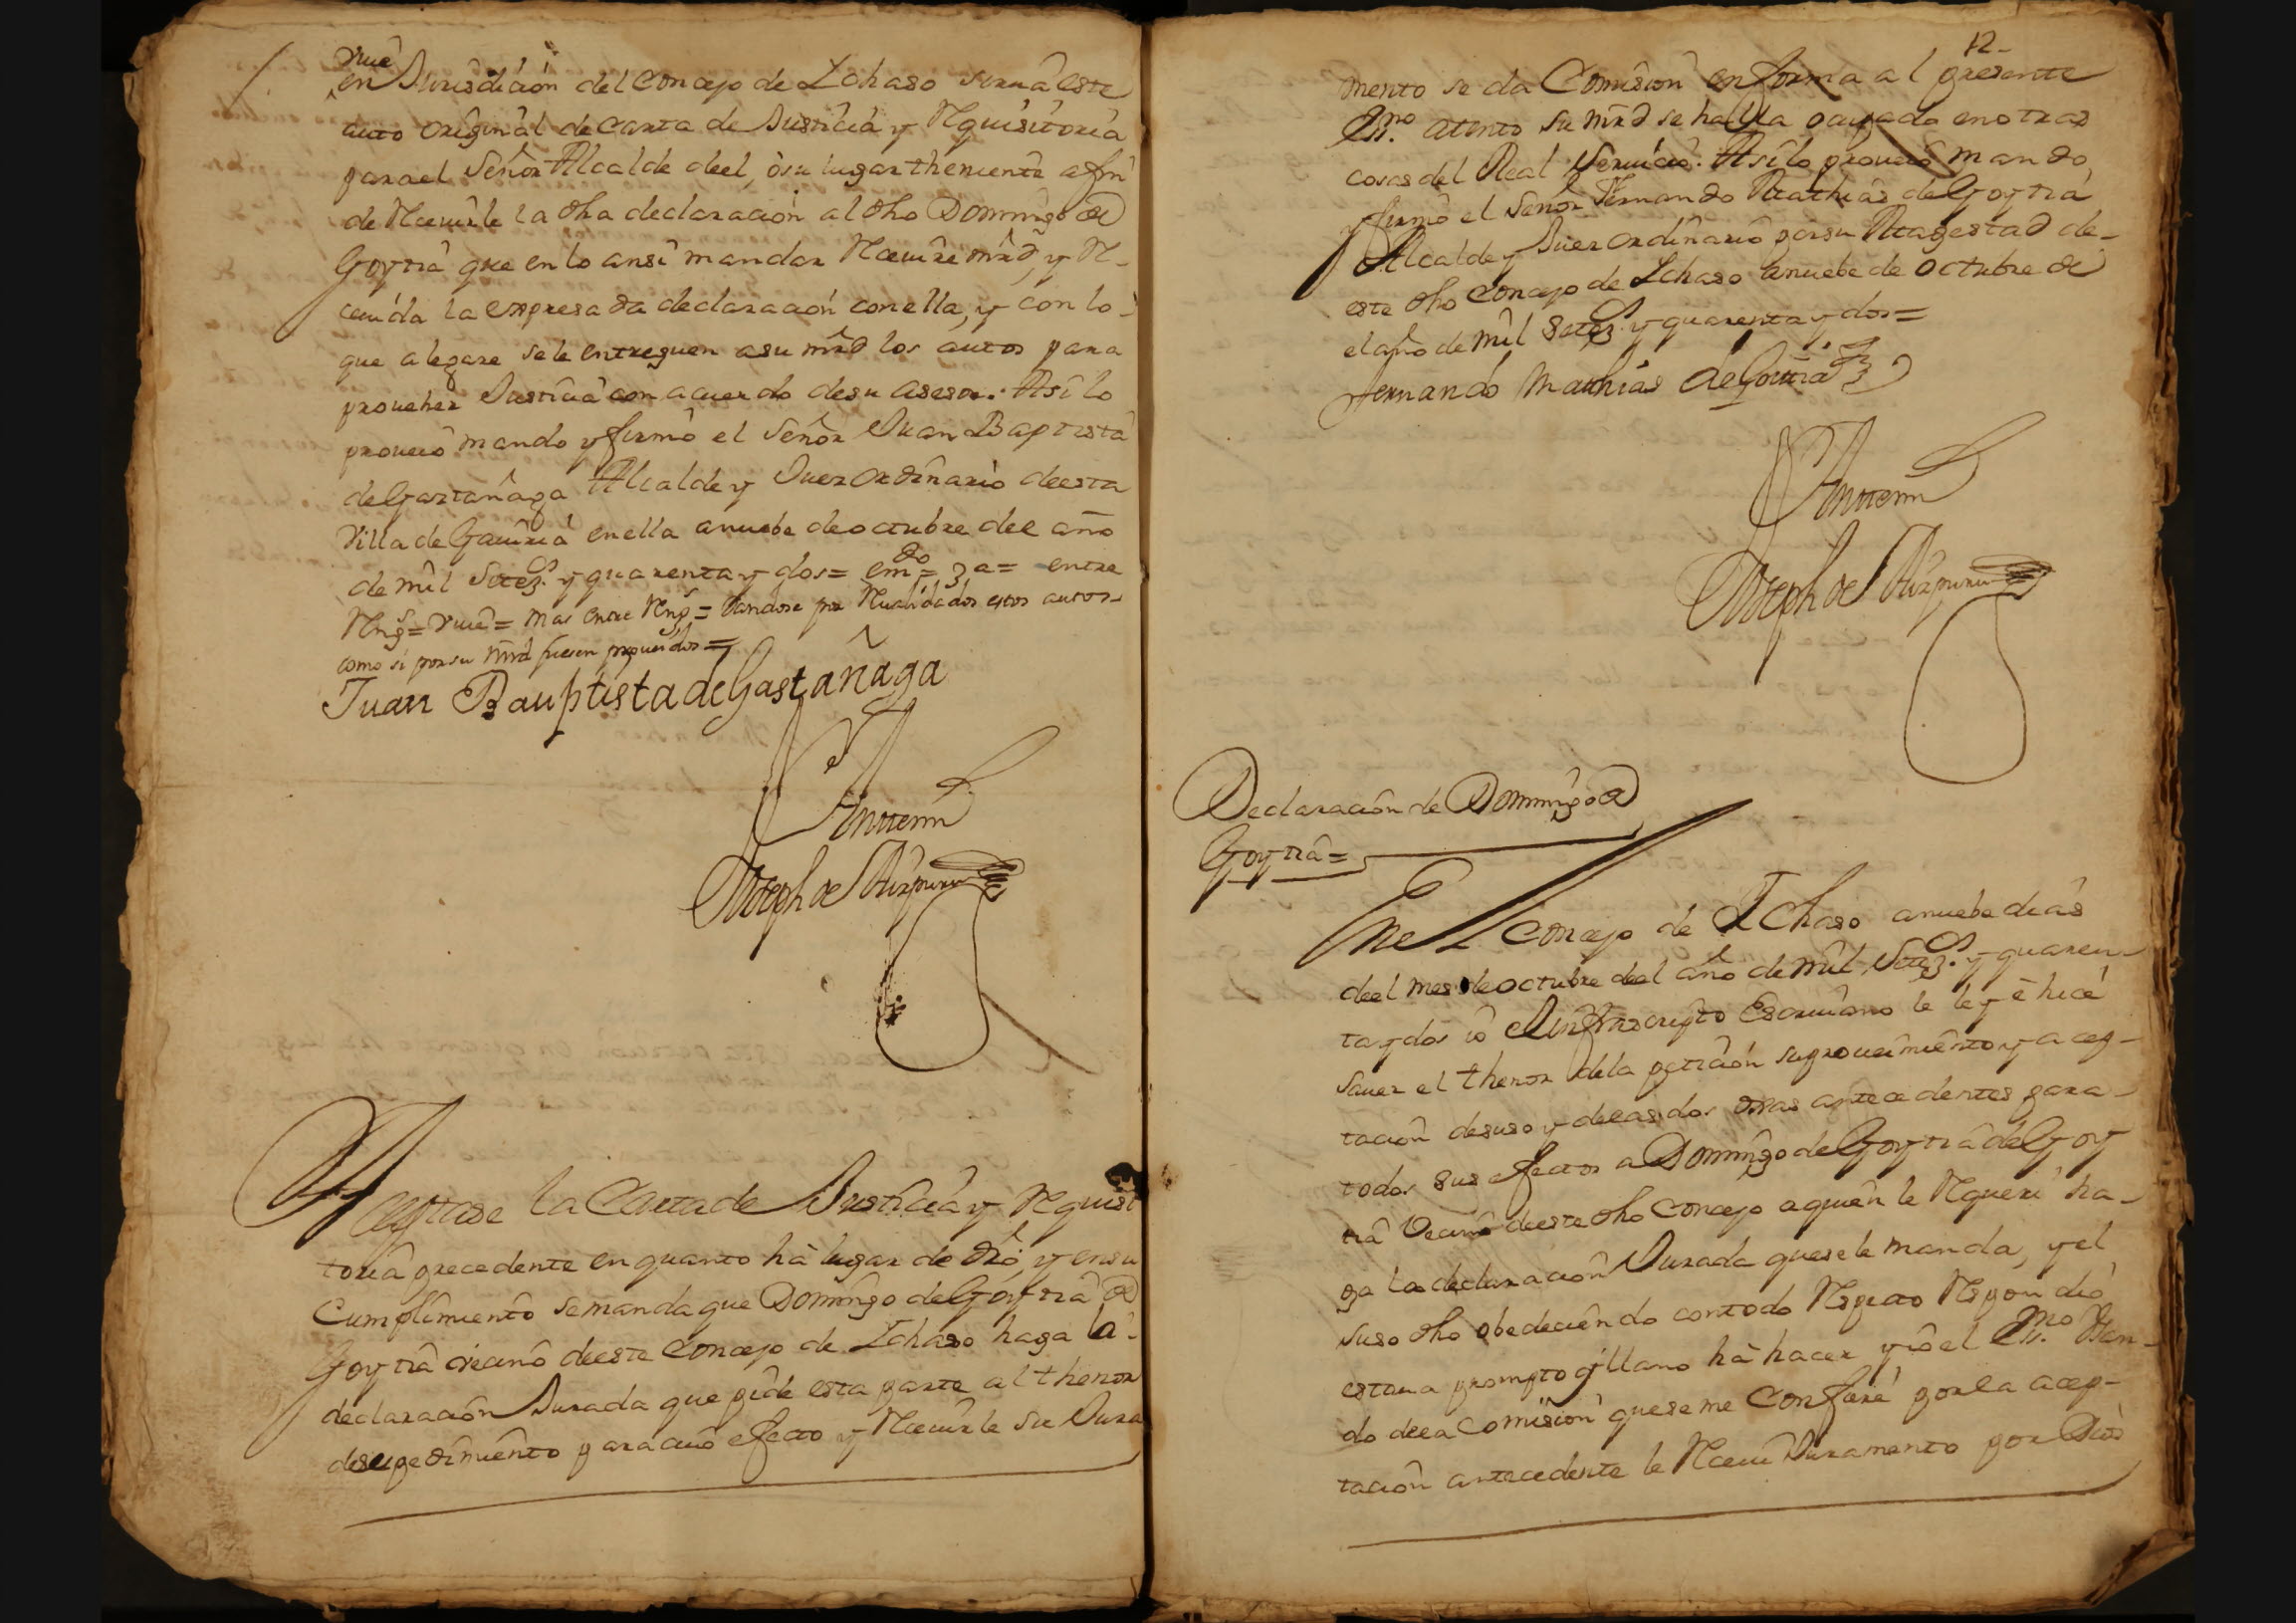 vive
en Jurisdición del Concejo de Ichaso sirva este
auto original de carta de Justicia y Requisitoria
para el Señor Alcalde deel, ò su lugar theniente afin
de Recivirle la dha declaración al dho Domingo de
Goytia que en lo ansi mandar Recivire mrd, y R-
cevida la expresada declaración con ella, y con lo
que alegare se le entreguen a su mrd los autos para
proveher Justicia con acuerdo de su asesor. Asi lo
proveió mando y firmó el Señor Juan Baptista
de Gastañaga Alcalde y Juez ordinario deesta
Villa de Gaviria en ella a nuebe de octubre del año
de mil Setezs. y quarenta y dos = emdo = za = entre
Rengs = vive = mas entre Rengs = dandose por Revalidados estos autos
como si por su mrd fuesen proveidos =
Juan Bauptista de Gastañaga
Ante mi
Joseph de Aizpuru
Aceptase la Carta de Justicia y Requisi
toria precedente en quanto hà lugar de dro, y en su
Cumplimiento se manda que Domingo de Goytia de
Goytia vecino deeste Concejo de Ichaso haga la
declaración Jurada que pide esta parte al thenor
de su pedimiento para cuio efecto y Recivirle su Jura
12-
mento se da Comision en forma al presente
Essno. atento su mrd se halla ocupado en otras
cosas del Real Servicio. Asi lo proveió mando
y firmó el Señor Fernando Mathias de Goytia
Alcalde y Juez ordinario por su Magestad de-
este dho Concejo de Ichaso a nuebe de octubre de
el año de mil Setezs. y quarenta y dos =
Fernando Mathias de Goitia
Ante mi
Joseph de Aizpuru
Declaración de Domingo de
Goytia =
En el Concejo de Ichaso a nuebe dias
deel mes de octubre deel año de mil Setezs. y quaren-
ta y dos io el infrascripto Escrivano le ley è hice
saver el thenor dela petición su proveimiento y acep-
tación de suso y deeas dos ojas antecedentes para
todos sus efectos a Domingo de Goytia de Goy
tia Vecino deeste dho Concejo a quien le Requeri ha-
ga la declaración Jurada que se le manda, y el
suso dho obedeciendo con todo Respecto Respondió
estava prompto y llano hà hacer y io el Essno. Usan-
do deea Comision que se me Confiere por la acep-
tación antecedente le Recivi Juramento por Dios